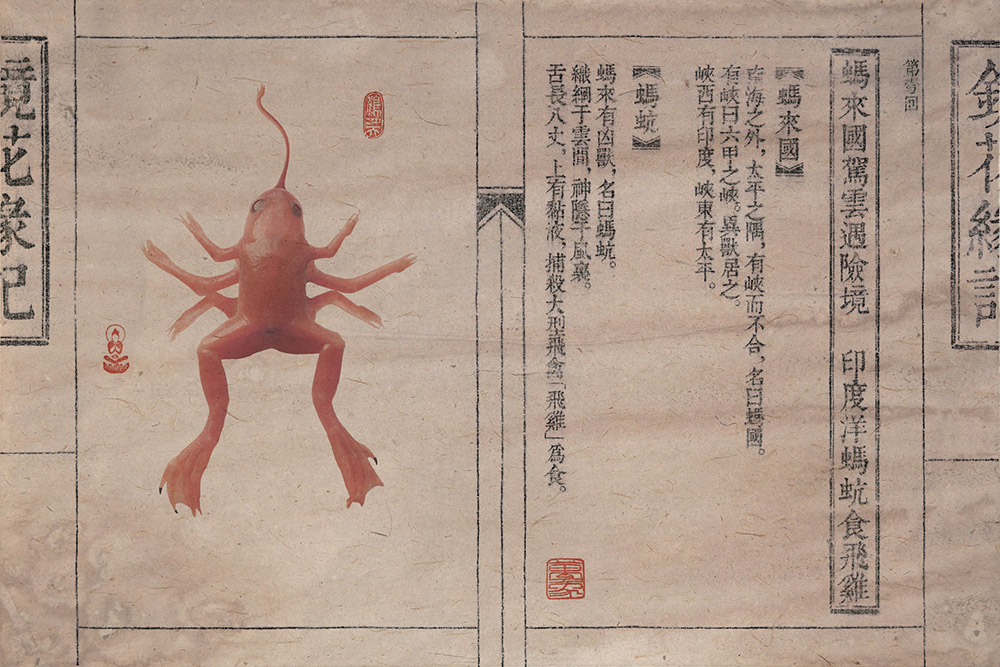 鏡花緣記
第壹回
螞來國駕雲遇險境　印度洋螞蚢食飛雞
【螞來國】
南海之外，太平之隅，有峽而不合，名曰螞國。
有峽曰六甲之峽。異獸居之。
峽西有印度，峽東有太平。
【螞蚢】
螞來有凶獸，名曰螞蚢。
織網于雲間，神隱于風襄。
舌長八丈，上有黏液，捕殺大型飛禽「飛雞」爲食。
鏡花緣記